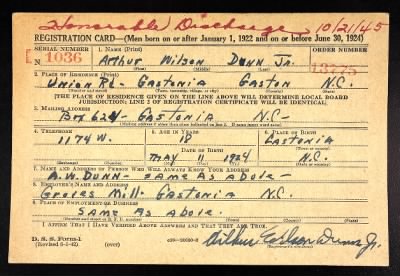 Honorable Discharge 10/21/45
REGISTRATION CARD—(Men born on or after January 1, 1922 and on or before June 30, 1924)
SERIAL NUMBER 1. NAME (Print) ORDER NUMBER
N 1036 Arthur Wilson Dunn Jr. 13775
2. PLACE OF RESIDENCE (Print)
Union Rd. Gastonia Gaston N.C.
[THE PLACE OF RESIDENCE GIVEN ON THE LINE ABOVE WILL DETERMINE LOCAL BOARD
JURISDICTION; LINE 2 OF REGISTRATION CERTIFICATE WILL BE IDENTICAL]
3. MAILING ADDRESS
Box 624 - Gastonia N.C.-
4. TELEPHONE 5. AGE IN YEARS 6. PLACE OF BIRTH
1174 W. 18 Gastonia
DATE OF BIRTH
May 11 1924 N.C.
7. NAME AND ADDRESS OF PERSON WHO WILL ALWAYS KNOW YOUR ADDRESS
A.W. Dunn - Same As Above -
8. EMPLOYER'S NAME AND ADDRESS
Groves Mill - Gastonia N.C.
9. PLACE OF EMPLOYMENT OR BUSINESS
Same As Above.
I AFFIRM THAT I HAVE VERIFIED ABOVE ANSWERS AND THAT THEY ARE TRUE.
D. S. S. Form 1
Dunn Jr.